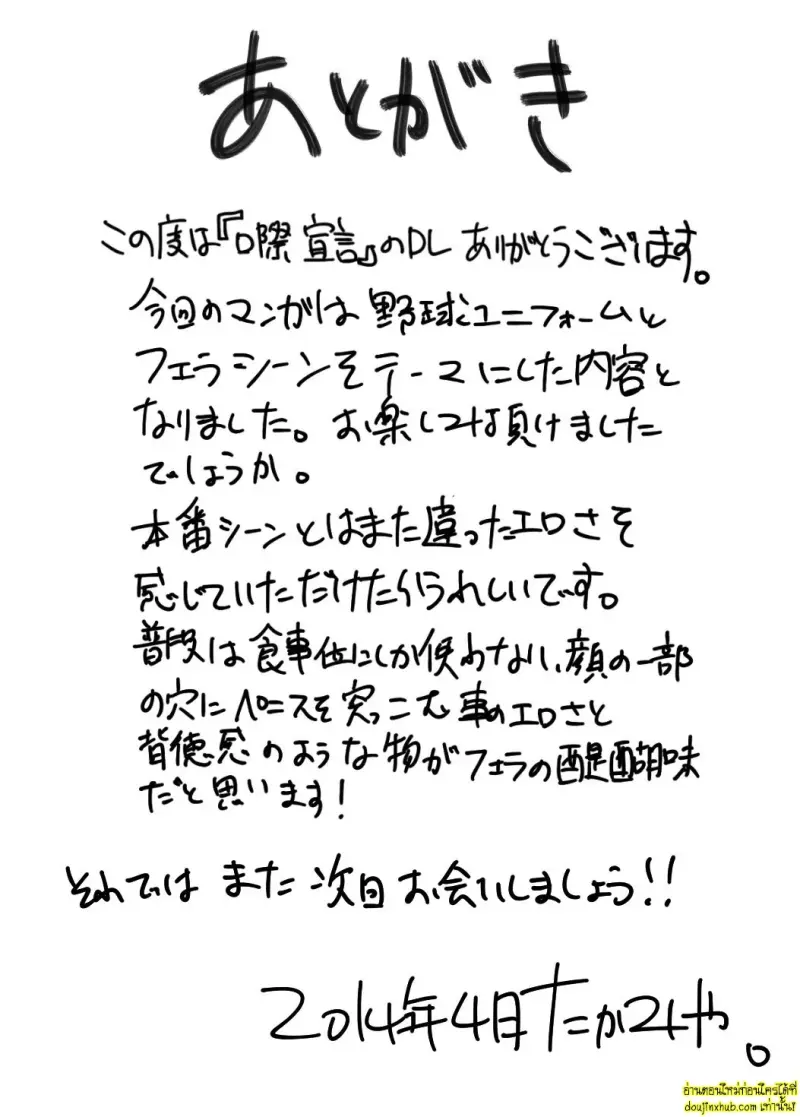 あとがき
この度は『口際宣言』のDLありがとうございます。
今回のマンガは野球ユニフォームと
フェラシーンをテーマにした内容と
なりました。お楽しみ頂けました
でしょうか。
本番シーンとはまた違ったエロさを
感じていただけたらうれしいです。
普段は食事位にしか使わない、顔の一部
の穴にペニスを突っこむ事のエロさと
背徳感のような物がフェラの醍醐味
だと思います!
それではまた次回お会いしましょう!!
2014年4月たかみや。
อ่านตอนใหม่ก่อนใครได้ที่
doujinxhub.com เท่านั้น!